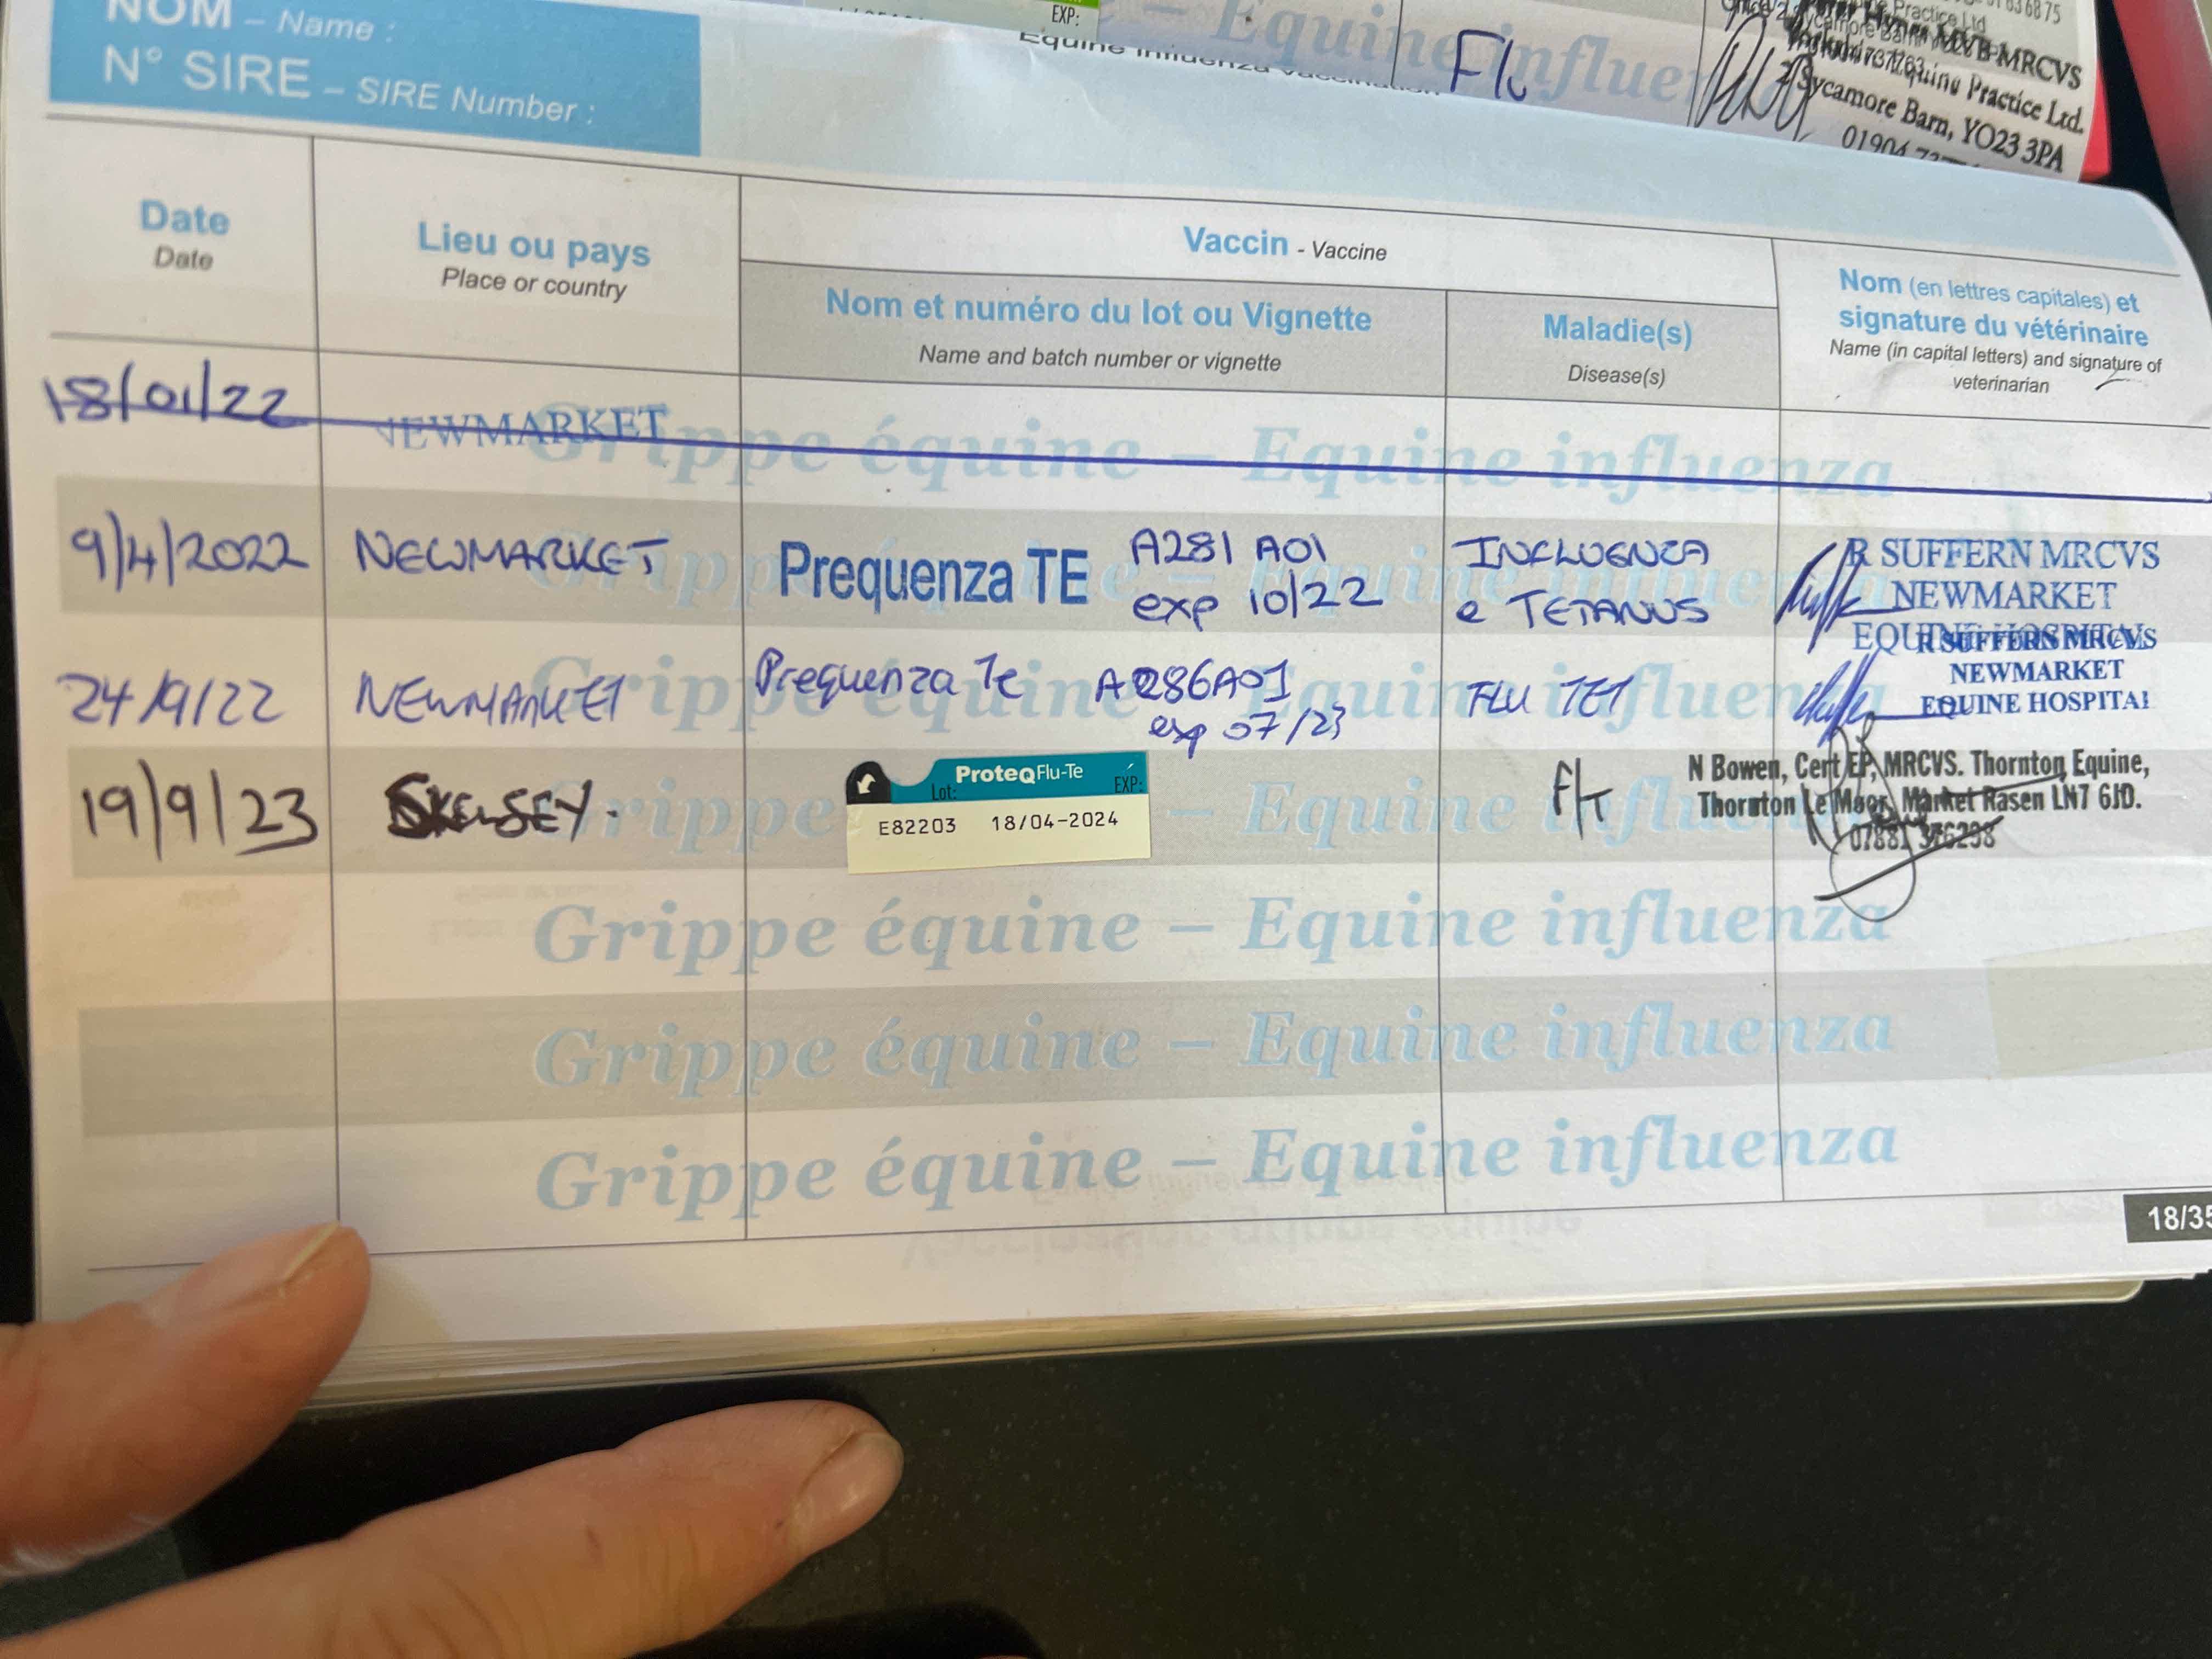 NOM – Name :
N° SIRE – SIRE Number :
EXP:
Equine influenza vaccination
– Equine influenza
Flu
MVB MRCVS
Equine Practice Ltd.
2 Sycamore Barn, YO23 3PA
01904
Date
Date
Lieu ou pays
Place or country
Vaccin - Vaccine
Nom et numéro du lot ou Vignette
Name and batch number or vignette
Maladie(s)
Disease(s)
Nom (en lettres capitales) et
signature du vétérinaire
Name (in capital letters) and signature of
veterinarian
18/01/22
NEWMARKET
Grippe équine – Equine influenza
9/4/2022
NEWMARKET
Prequenza TE
A281 A01
exp 10/22
INFLUENZA
e TETANUS
R SUFFERN MRCVS
NEWMARKET
EQUINE HOSPITAL
24/9/22
NEWMARKET
Prequenza Te
A286A01
exp 07/23
FLU TET
R SUFFERN MRCVS
NEWMARKET
EQUINE HOSPITAL
19/9/23
SKELSEY.
ProteqFlu-Te
Lot:
EXP:
E82203 18/04-2024
F/T
N Bowen, Cert EP, MRCVS. Thornton Equine,
Thornton Le Moor, Market Rasen LN7 6JD.
07881 376298
Grippe équine – Equine influenza
Grippe équine – Equine influenza
Grippe équine – Equine influenza
18/35